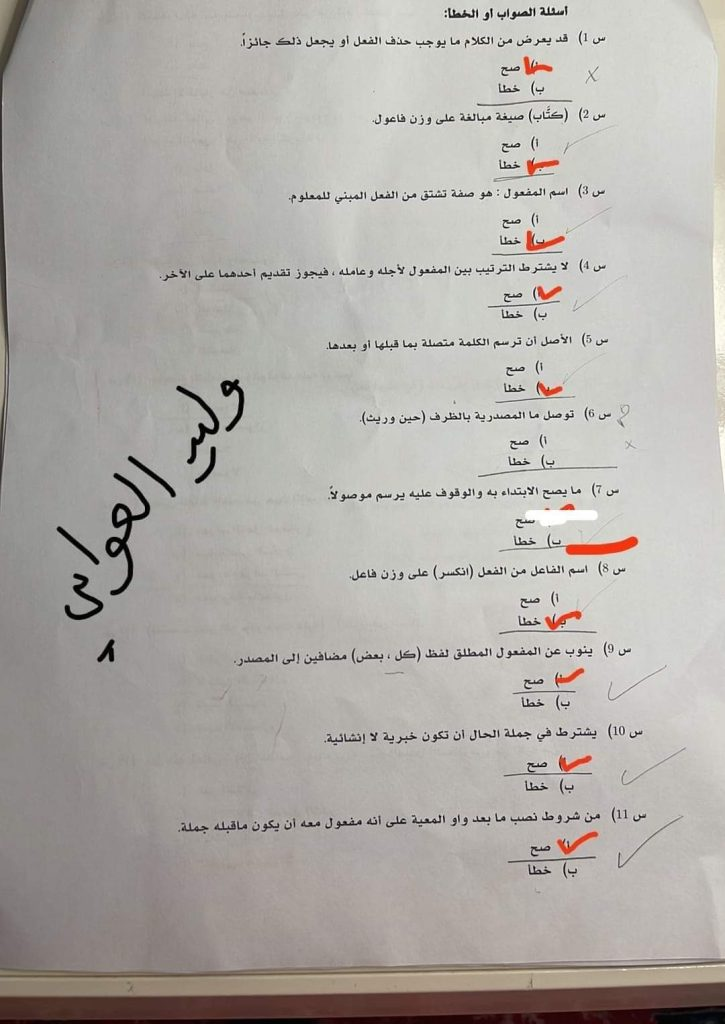 أسئلة الصواب أو الخطأ:
س 1) قد يعرض من الكلام ما يوجب حذف الفعل أو يجعل ذلك جائزاً.
أ) صح
ب) خطأ
س 2) (كتَّاب) صيغة مبالغة على وزن فاعول.
أ) صح
ب) خطأ
س 3) اسم المفعول : هو صفة تشتق من الفعل المبني للمعلوم.
أ) صح
ب) خطأ
س 4) لا يشترط الترتيب بين المفعول لأجله وعامله ، فيجوز تقديم أحدهما على الآخر.
أ) صح
ب) خطأ
س 5) الأصل أن ترسم الكلمة متصلة بما قبلها أو بعدها.
أ) صح
ب) خطأ
س 6) توصل ما المصدرية بالظرف (حين وريث).
أ) صح
ب) خطأ
س 7) ما يصح الابتداء به والوقوف عليه يرسم موصولاً.
صح
ب) خطأ
س 8) اسم الفاعل من الفعل (انكسر) على وزن فاعل.
أ) صح
ب) خطأ
س 9) ينوب عن المفعول المطلق لفظ (كل ، بعض) مضافين إلى المصدر.
أ) صح
ب) خطأ
س 10) يشترط في جملة الحال أن تكون خبرية لا إنشائية.
أ) صح
ب) خطأ
س 11) من شروط نصب ما بعد واو المعية على أنه مفعول معه أن يكون ماقبله جملة.
أ) صح
ب) خطأ